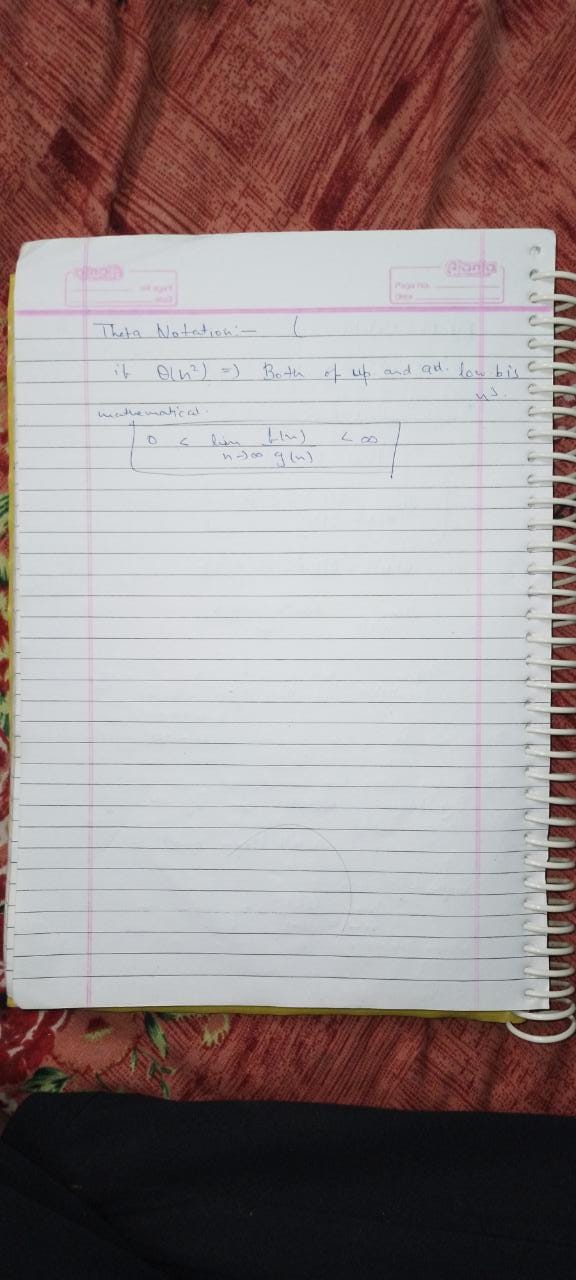 Page No.
Date
Theta Notation:- (
if θ(n²) => Both of up and low b is
n³.
mathematical.
0 < lim n→∞ f(n)/g(n) < ∞